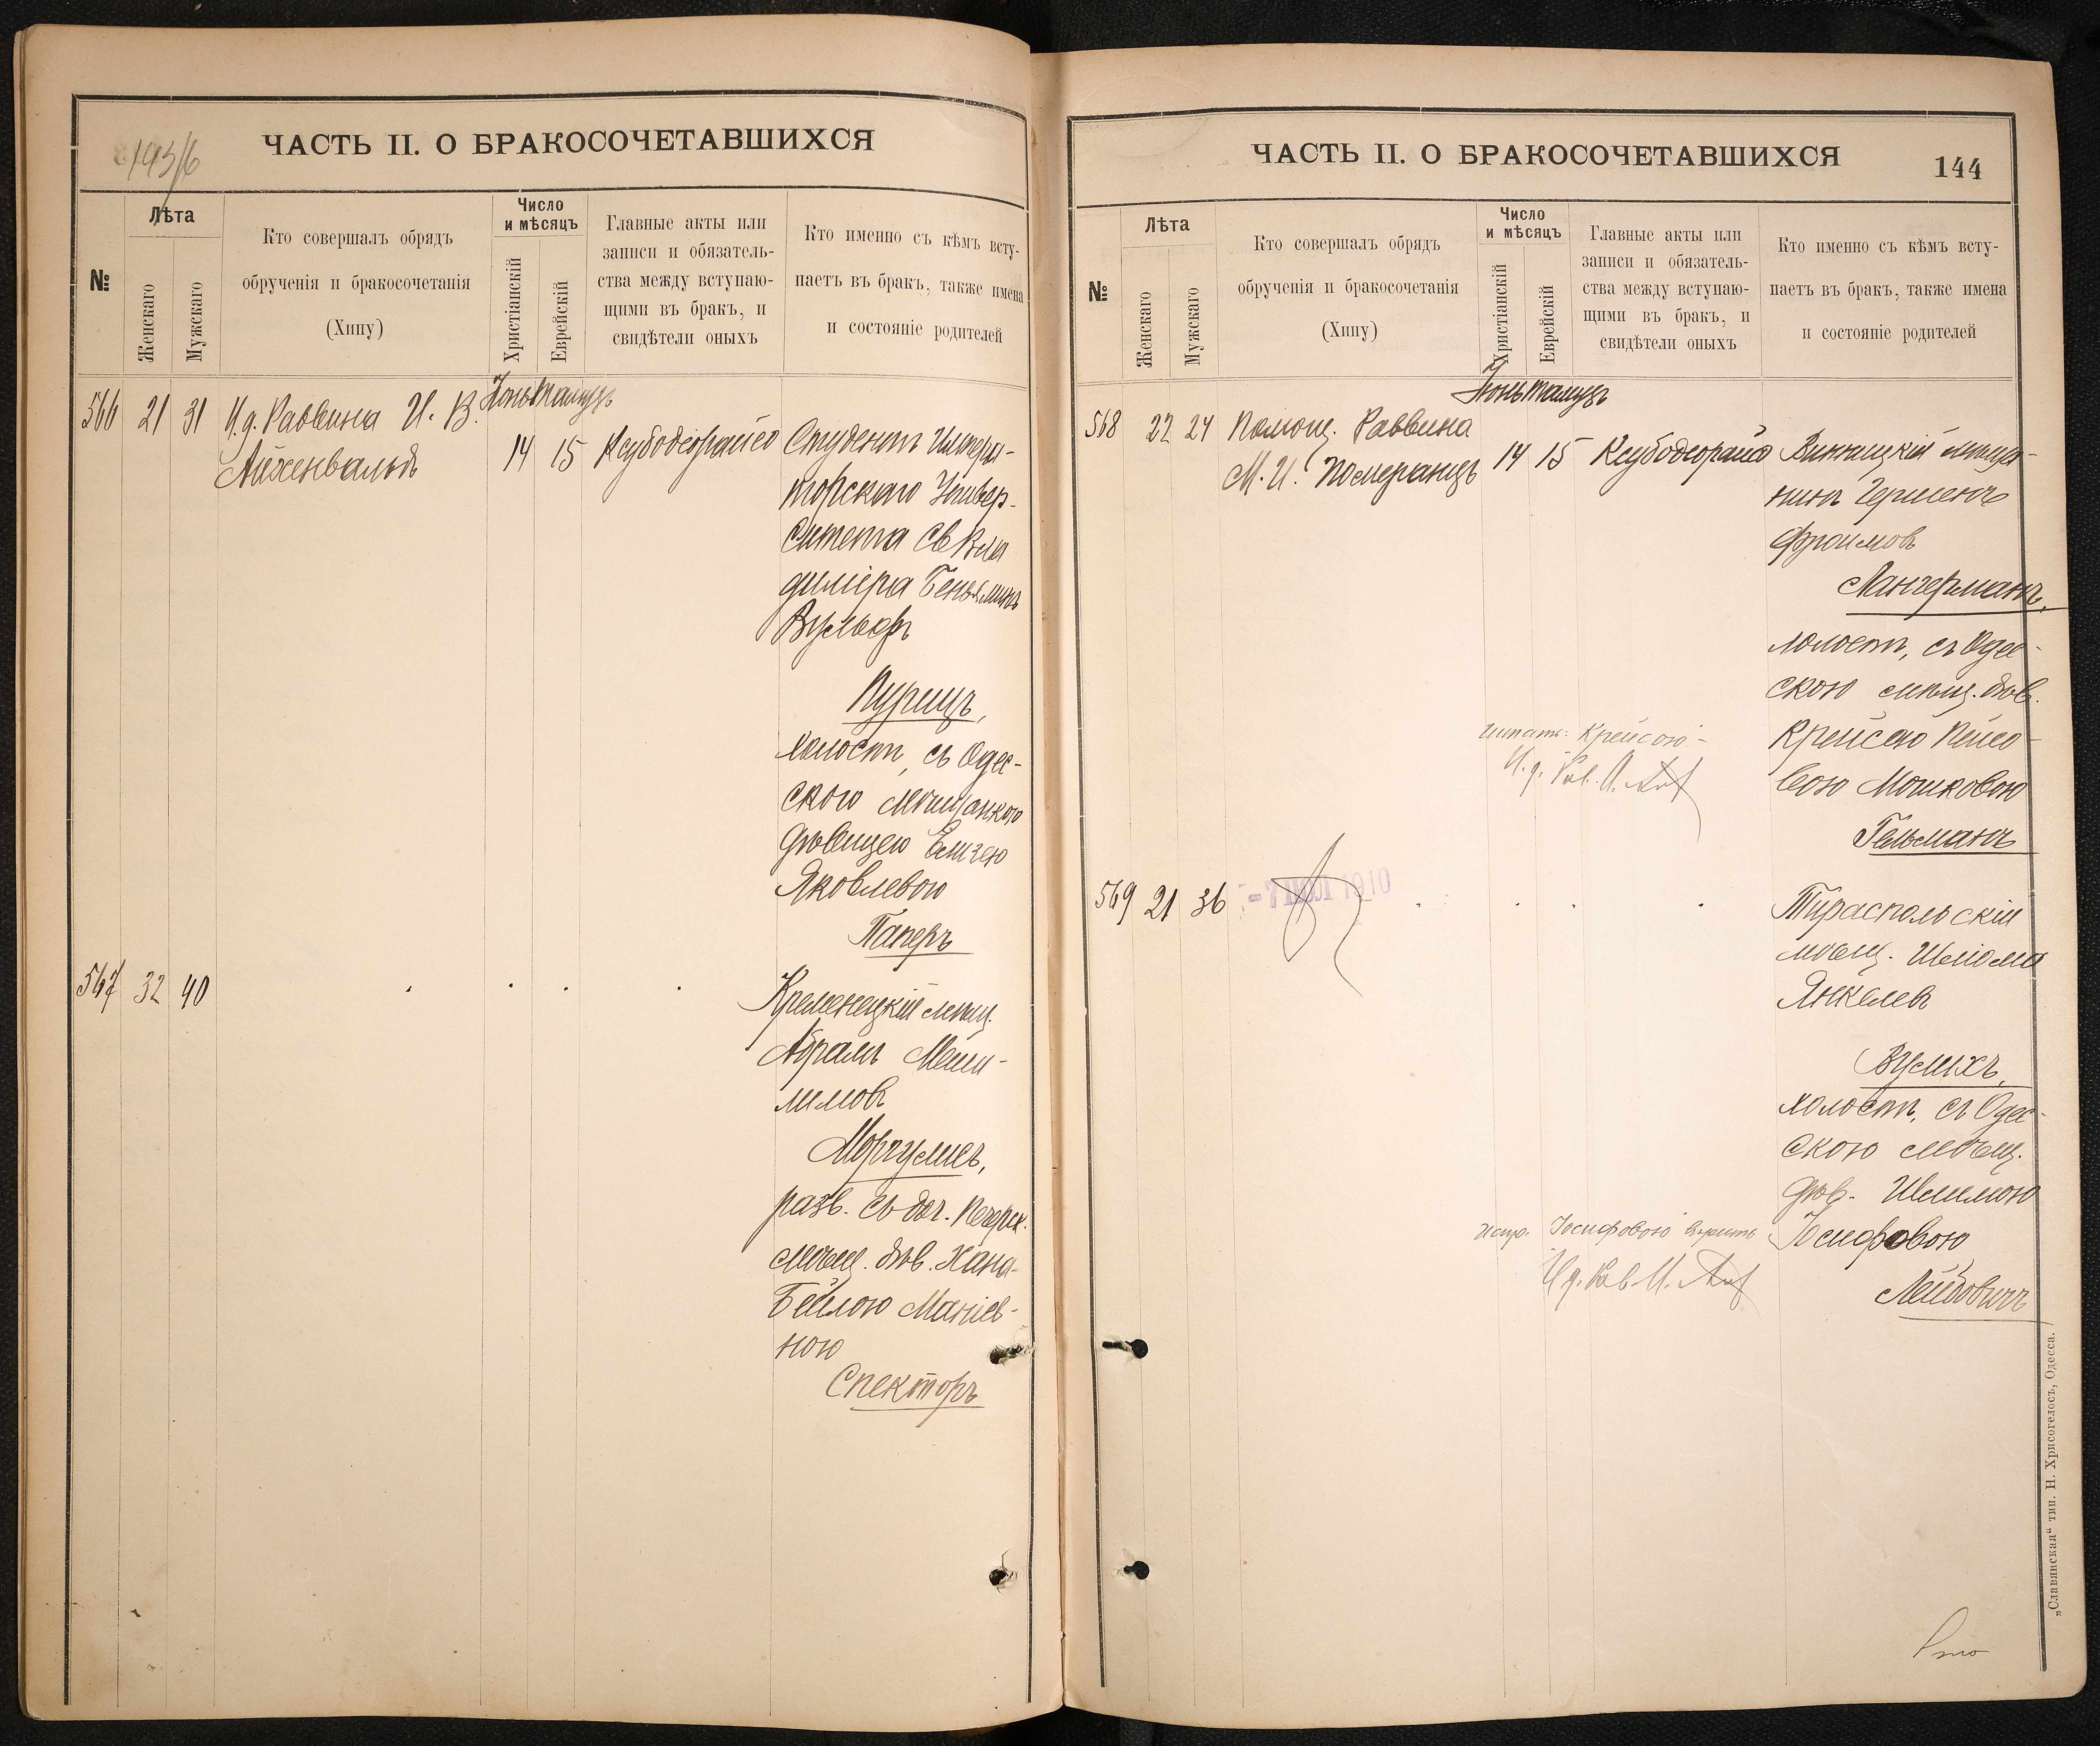 193/6
ЧАСТЬ II. О БРАКОСОЧЕТАВШИХСЯ
№
Лѣта
Женскаго
Мужскаго
Кто совершалъ обрядъ
обрученія и бракосочетанія
(Хипу)
Число
и мѣсяцъ
Христіанскій
Еврейскій
Главные акты или
записи и обязатель-
ства между вступаю-
щими въ бракъ, и
свидѣтели оныхъ
Кто именно съ кѣмъ всту-
паетъ въ бракъ, также имена
и состояніе родителей
Іюнь Тамузъ
566 21 31 И.д. Раввина И. В.
Айхенвальдъ
14 15 Ксубодеорайсо
Студентъ Импера-
торскаго Универ-
ситета Св Вла
диміра Беньяминъ
Вульфъ
Пурицъ,
холостъ, съ Одес-
скою мѣщанкою
дѣвицею Елизею
Яковлевою
Паперъ
567 32 40
Кременецкій мѣщ.
Абрамъ Меши-
лимовъ
Моргулисъ,
разв. съ Бог. Печерск.
мѣщ. дѣв. Хана-
Бейлою Маніев-
ною
Спекторъ
ЧАСТЬ II. О БРАКОСОЧЕТАВШИХСЯ
144
№
Лѣта
Женскаго
Мужскаго
Кто совершалъ обрядъ
обрученія и бракосочетанія
(Хипу)
Число
и мѣсяцъ
Христіанскій
Еврейскій
Главные акты или
записи и обязатель-
ства между вступаю-
щими въ бракъ, и
свидѣтели оныхъ
Кто именно съ кѣмъ всту-
паетъ въ бракъ, также имена
и состояніе родителей
Іюнь Тамузъ
568 22 24 Помощ. Раввина
М. И. Померанцъ
14 15 Ксубодеорайсо
Винницкій мѣща-
нинъ Герценъ
Фроимовъ
Лангерманъ,
холостъ, съ Одес-
скою мѣщ. дѣв.
Крейсею Пейсо-
вою Мошковою
Гельманъ
читать: Крейсою -
И.д. Рав. И.
569 21 36
1910
Тираспольскій
мѣщ. Шлиома
Янкелев
Вулихъ,
холостъ, съ Одес-
скою мѣщ.
дѣв. Шлимою
Іосифовою
Лейбовичъ
испр. "Іосифовою" вѣрить
И.д. Рав И.
„Славянская“ тип. Н. Хрисогелосъ, Одесса.